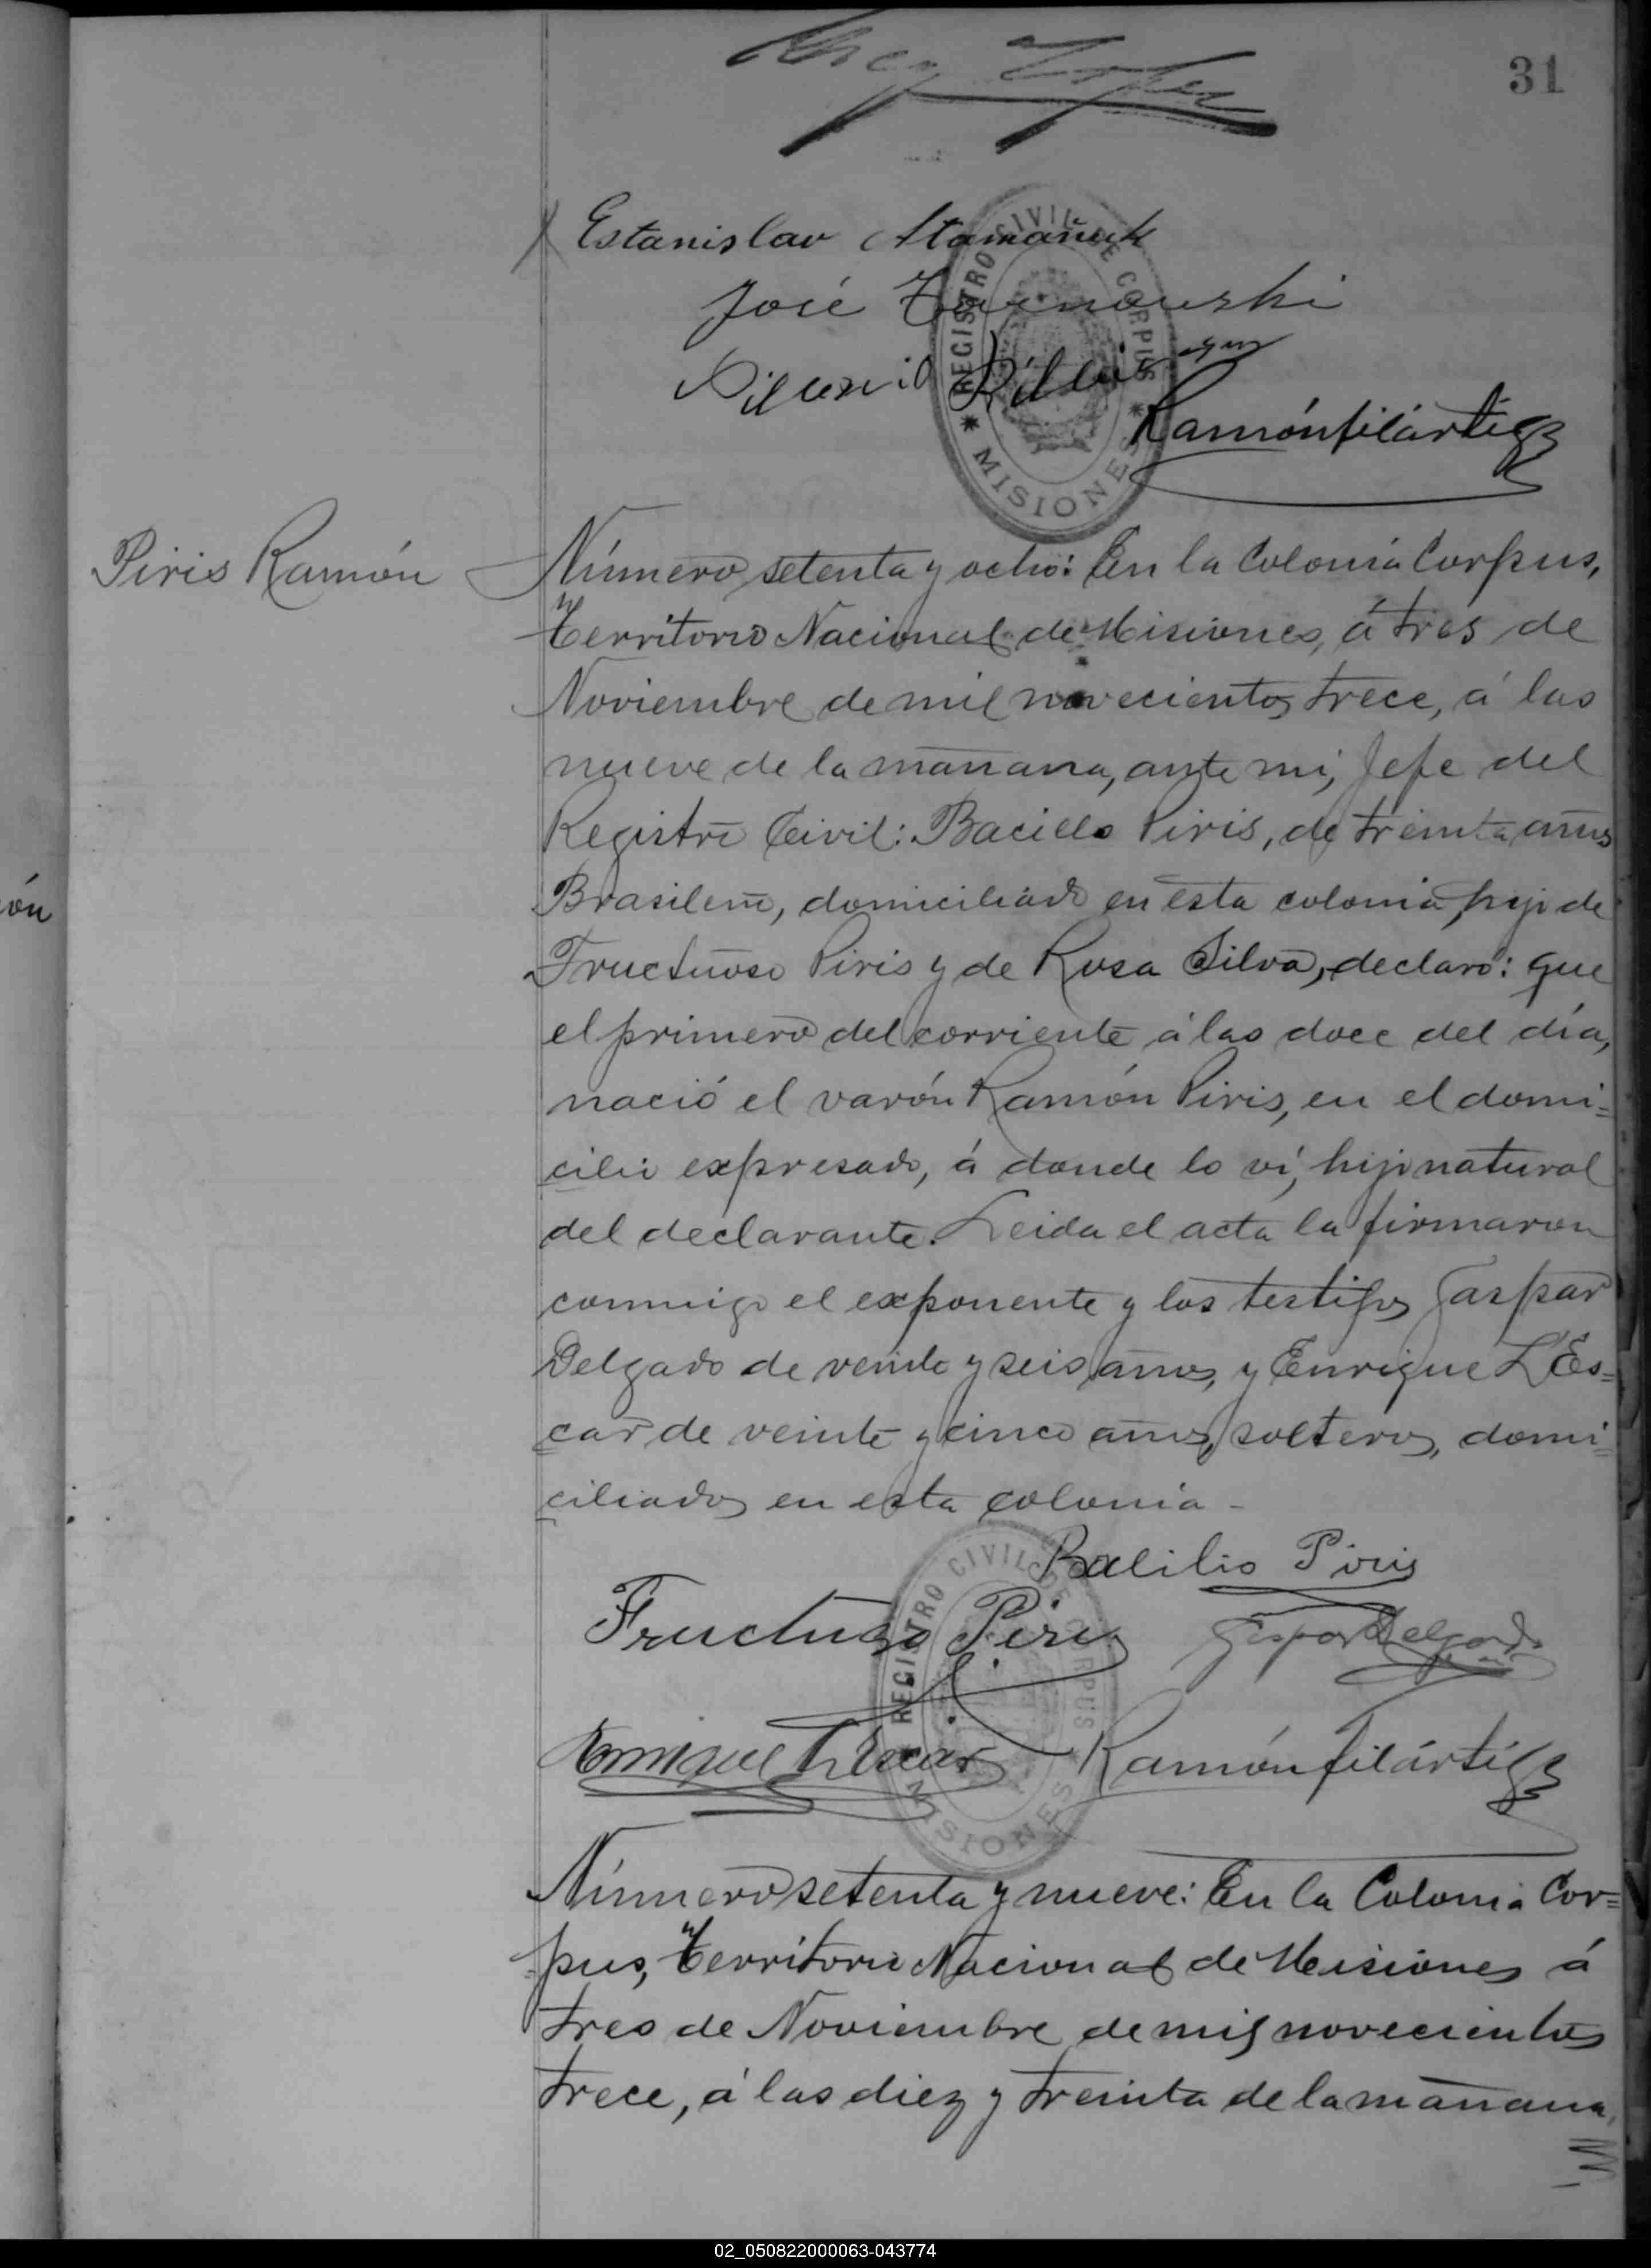 31
Estanislav Atamañuk
José
Ramón filártiga
REGISTRO CIVIL DE CORPUS
* MISIONES *
Piris Ramón
Número setenta y ocho: En la Colonia Corpus,
Territorio Nacional de Misiones, á tres de
Noviembre de mil novecientos trece, á las
nueve de la mañana, ante mi, Jefe del
Registro Civil: Bacilio Piris, de treinta años
Brasileño, domiciliado en esta colonia, hijo de
Fructuoso Piris y de Rosa Silva, declaró: que
el primero del corriente á las doce del día,
nació el varón Ramón Piris, en el domi=
cilio expresado, á donde lo ví, hijo natural
del declarante. Leida el acta la firmaron
conmigo el exponente y los testigos Gaspar
Delgado de veinte y seis años, y Enrique L'Es=
car de veinte y cinco años, solteros, domi=
ciliados en esta colonia -
ón
Balilio Piris
Fructuoso Piris
Gaspar Delgado
Enrique L'Escar
Ramón filártiga
REGISTRO CIVIL DE CORPUS
MISIONES
Número setenta y nueve: En la Colonia Cor=
pus, Territorio Nacional de Misiones á
tres de Noviembre de mil novecientos
trece, á las diez y treinta de la mañana,
02_050822000063-043774